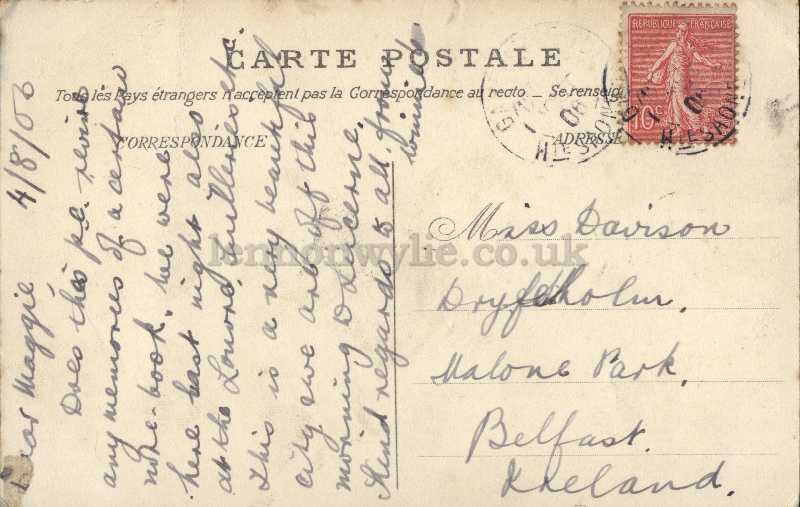 CARTE POSTALE
Tous les Pays étrangers n'acceptent pas la Correspondance au recto. _ Se renseign
CORRESPONDANCE
ADRESSE
REPUBLIQUE FRANÇAISE
10c
06
HTE SAONE
06
HTE SAONE
4/8/06
Dear Maggie
Does this p.c. revive
any memories of a certain
note-book. We were
here last night also
at the Louvre, Tuilleries etc.
This is a very beautiful
city & we are off this
morning to Lucerne.
Kind regards to all. from
Winnie
Miss Davison
Dryfeholm,
Malone Park,
Belfast.
Ireland.
lennonwylie.co.uk